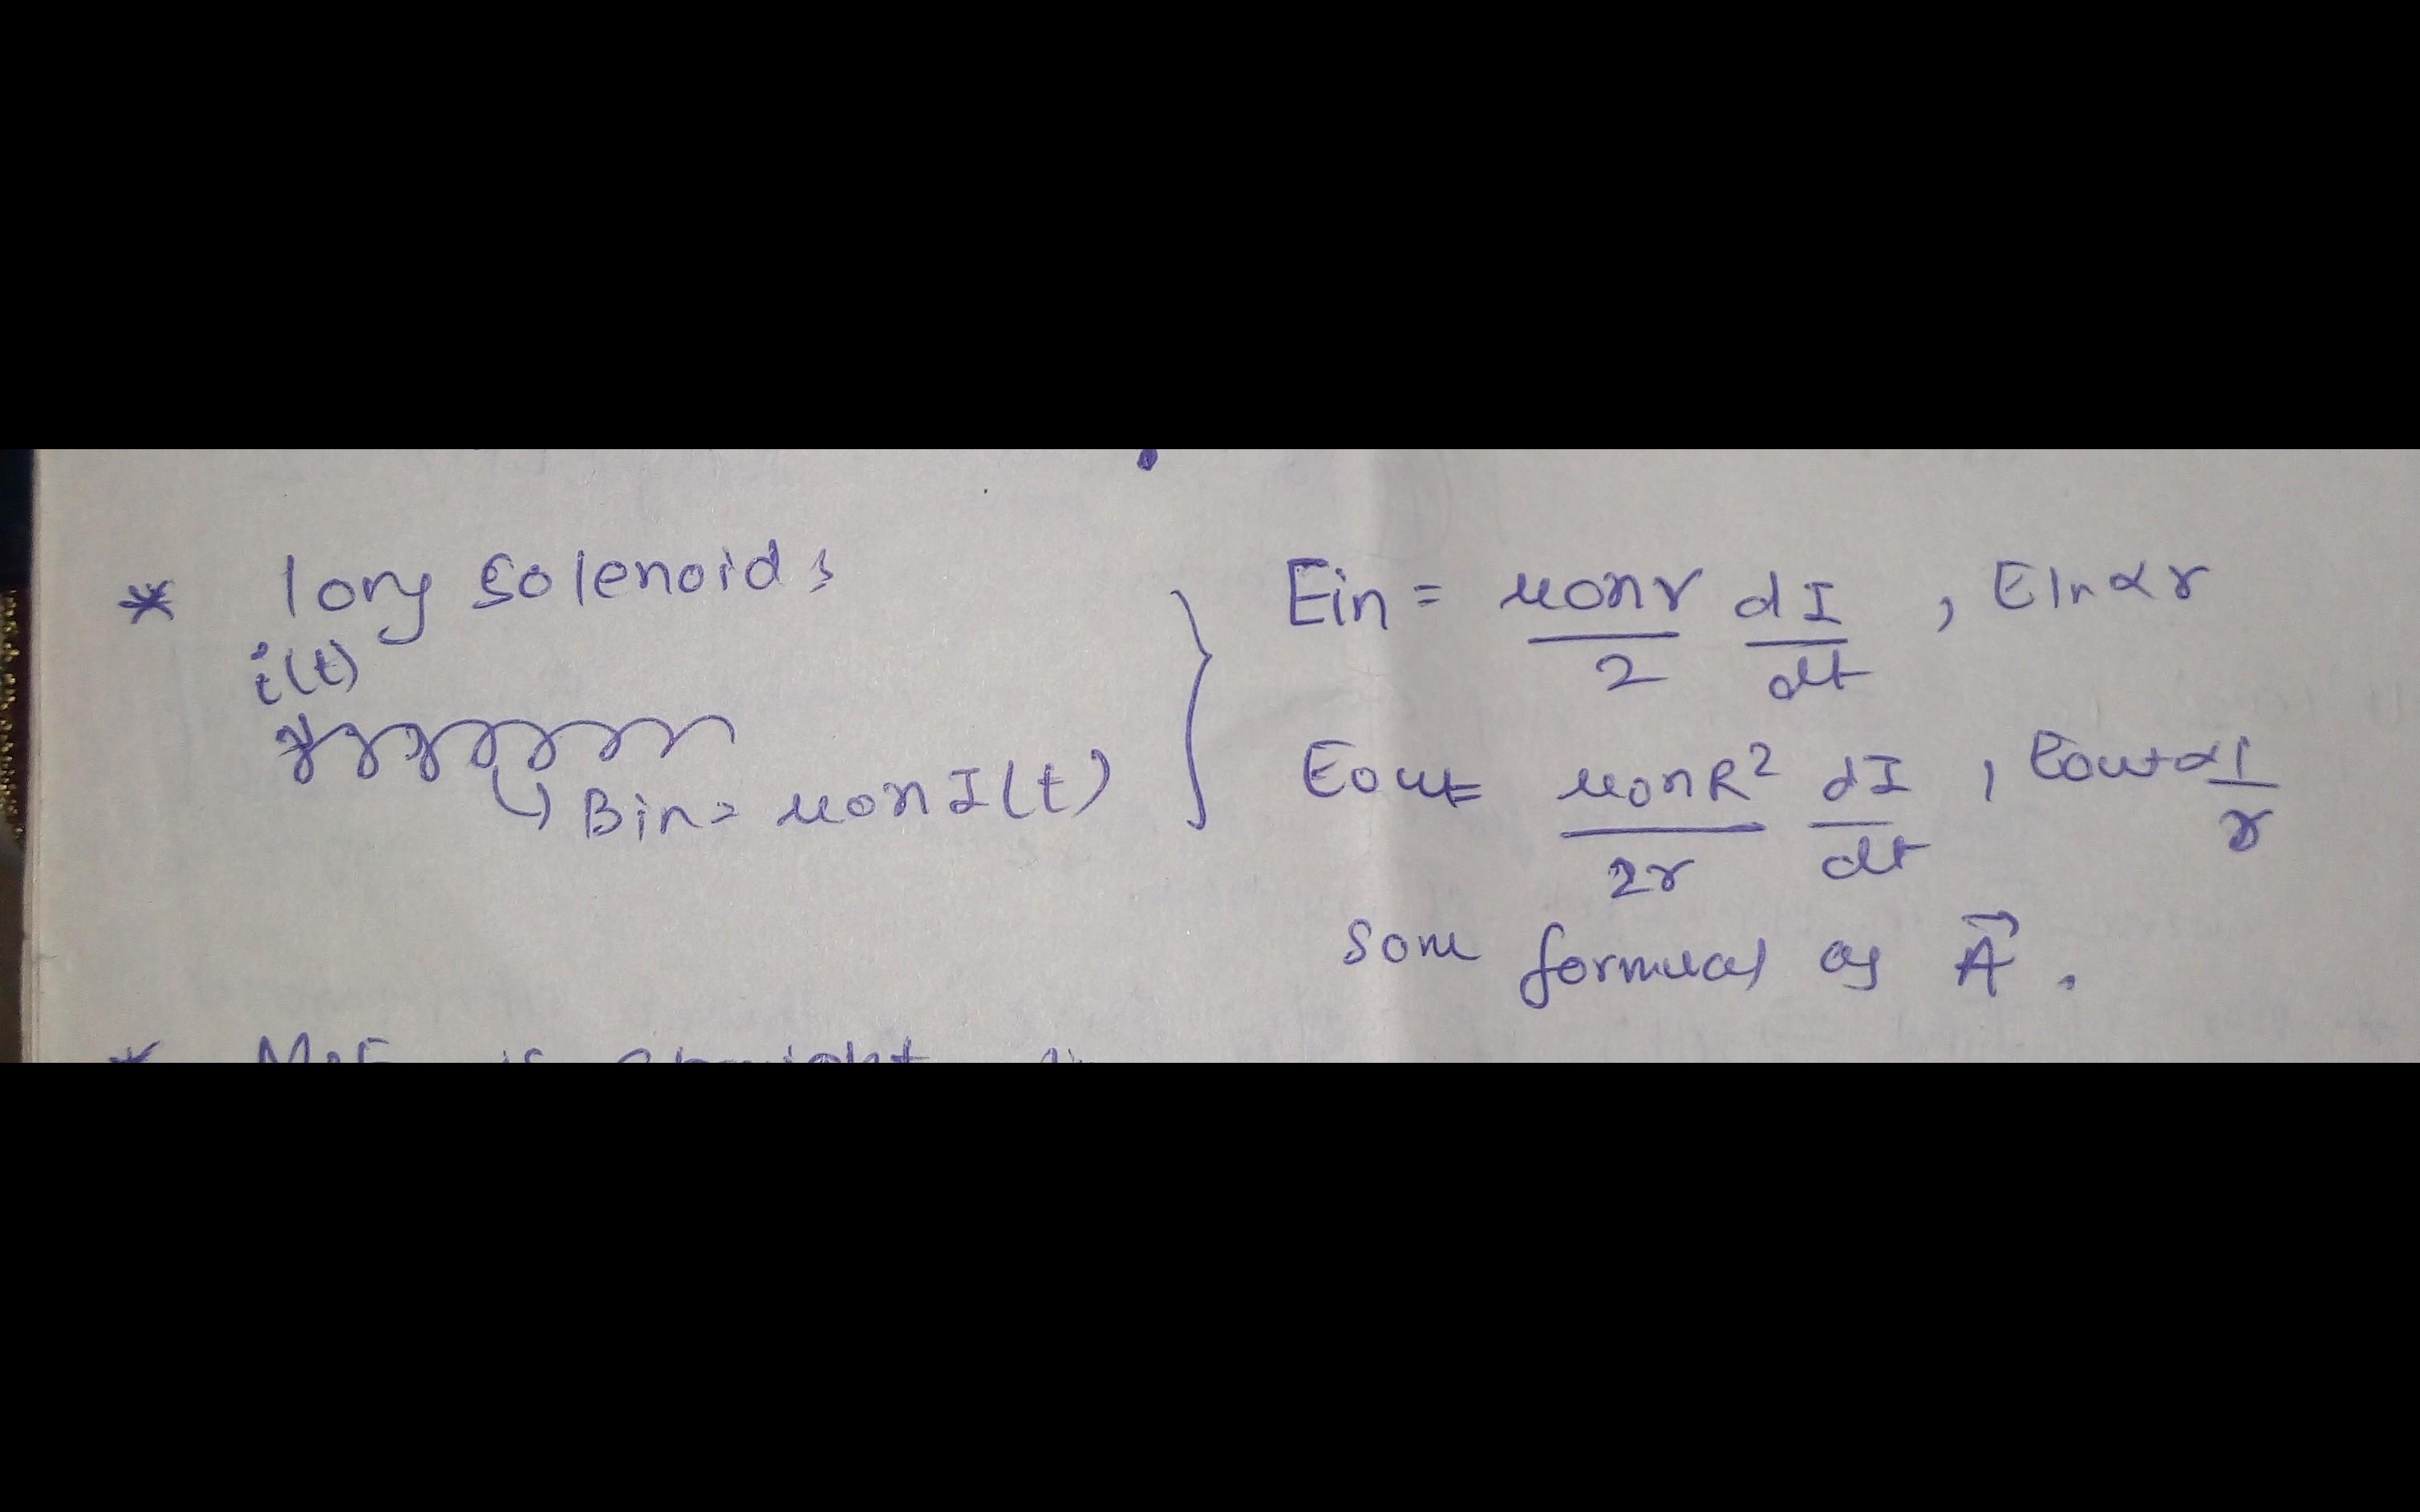 * long solenoids
i(t)
Bin = μ0nI(t)
Ein = μ0nr/2 dI/dt , Ein ∝ r
Eout = μ0nR²/2r dI/dt , Eout ∝ 1/r
Som formual as A⃗.